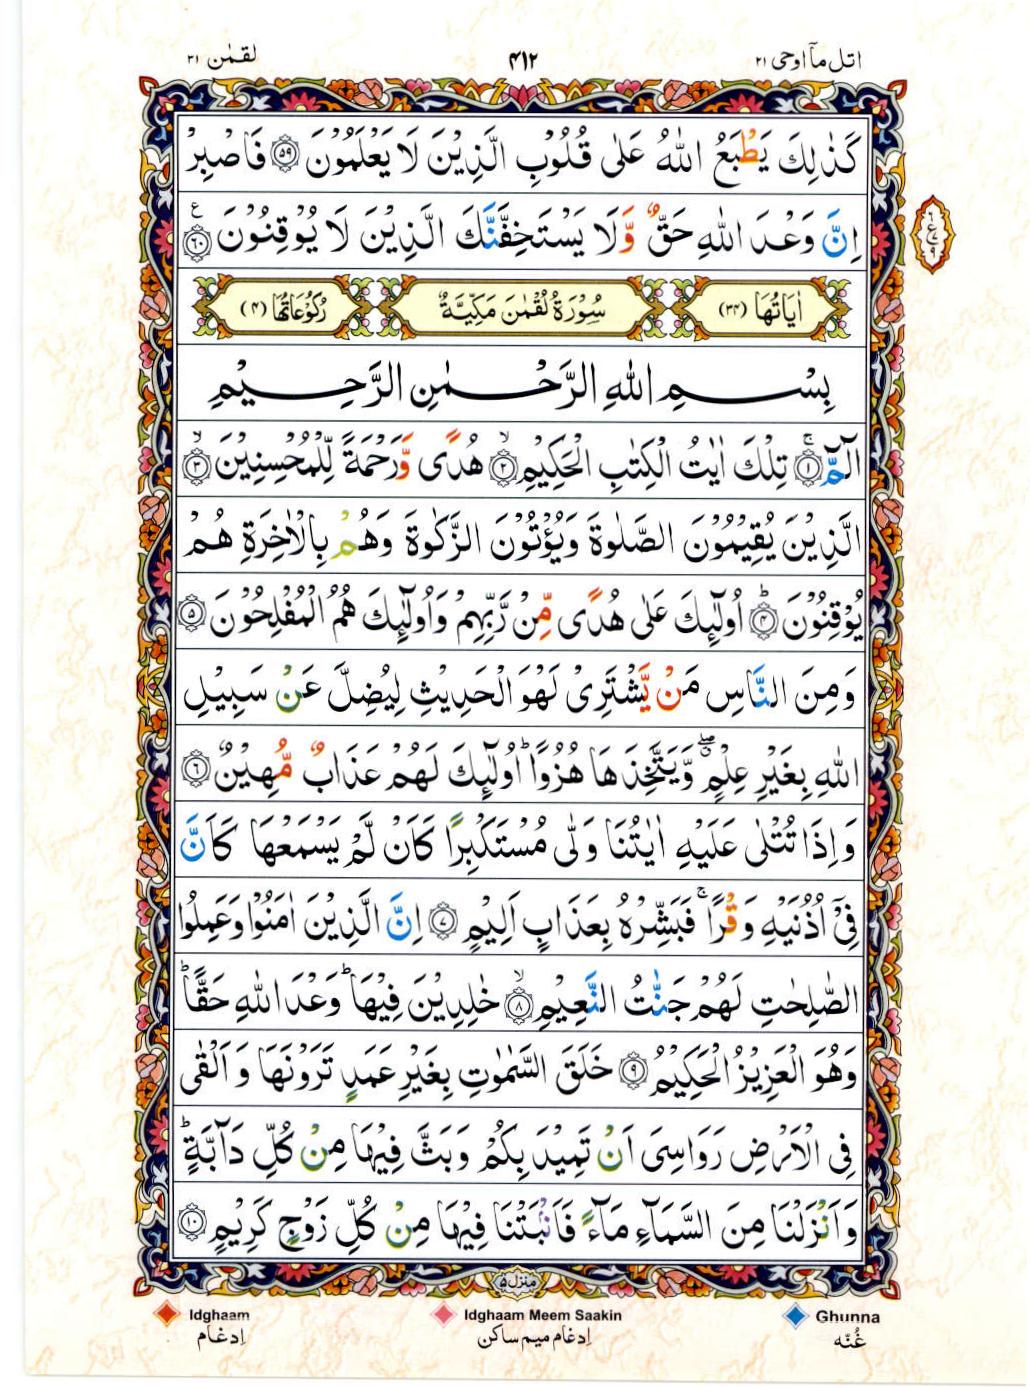 اتل مآ اوحی ۲۱
۴۱۲
لقمٰن ۳۱
كَذٰلِكَ يَطْبَعُ اللّٰهُ عَلٰى قُلُوْبِ الَّذِيْنَ لَا يَعْلَمُوْنَ ۝۵۹ فَاصْبِرْ
اِنَّ وَعْدَ اللّٰهِ حَقٌّ وَّلَا يَسْتَخِفَّنَّكَ الَّذِيْنَ لَا يُوْقِنُوْنَ ۝۶۰ ع
اٰيَاتُهَا (۳۴) سُوْرَةُ لُقْمٰنَ مَكِّيَّةٌ رُكُوْعَاتُهَا (۴)
بِسْمِ اللّٰهِ الرَّحْمٰنِ الرَّحِيْمِ
الٓمّٓ ۝۱ۚ تِلْكَ اٰيٰتُ الْكِتٰبِ الْحَكِيْمِ ۝۲ۙ هُدًى وَّرَحْمَةً لِّلْمُحْسِنِيْنَ ۝۳ۙ
الَّذِيْنَ يُقِيْمُوْنَ الصَّلٰوةَ وَيُؤْتُوْنَ الزَّكٰوةَ وَهُمْ بِالْاٰخِرَةِ هُمْ
يُوْقِنُوْنَ ۝۴ؕ اُولٰٓئِكَ عَلٰى هُدًى مِّنْ رَّبِّهِمْ وَاُولٰٓئِكَ هُمُ الْمُفْلِحُوْنَ ۝۵
وَمِنَ النَّاسِ مَنْ يَّشْتَرِىْ لَهْوَ الْحَدِيْثِ لِيُضِلَّ عَنْ سَبِيْلِ
اللّٰهِ بِغَيْرِ عِلْمٍ ۖۗ وَّيَتَّخِذَهَا هُزُوًا ؕ اُولٰٓئِكَ لَهُمْ عَذَابٌ مُّهِيْنٌ ۝۶
وَاِذَا تُتْلٰى عَلَيْهِ اٰيٰتُنَا وَلّٰى مُسْتَكْبِرًا كَاَنْ لَّمْ يَسْمَعْهَا كَاَنَّ
فِىْۤ اُذُنَيْهِ وَقْرًا ۚ فَبَشِّرْهُ بِعَذَابٍ اَلِيْمٍ ۝۷ اِنَّ الَّذِيْنَ اٰمَنُوْا وَعَمِلُوا
الصّٰلِحٰتِ لَهُمْ جَنّٰتُ النَّعِيْمِ ۝۸ۙ خٰلِدِيْنَ فِيْهَا ؕ وَعْدَ اللّٰهِ حَقًّا ؕ
وَهُوَ الْعَزِيْزُ الْحَكِيْمُ ۝۹ خَلَقَ السَّمٰوٰتِ بِغَيْرِ عَمَدٍ تَرَوْنَهَا وَاَلْقٰى
فِى الْاَرْضِ رَوَاسِىَ اَنْ تَمِيْدَ بِكُمْ وَبَثَّ فِيْهَا مِنْ كُلِّ دَآبَّةٍ ؕ
وَاَنْزَلْنَا مِنَ السَّمَآءِ مَآءً فَاَنْۢبَتْنَا فِيْهَا مِنْ كُلِّ زَوْجٍ كَرِيْمٍ ۝۱۰
منزل ۵
Ghunna Idghaam Meem Saakin Idghaam
غُنّه اِدغام میم ساکن اِدغام